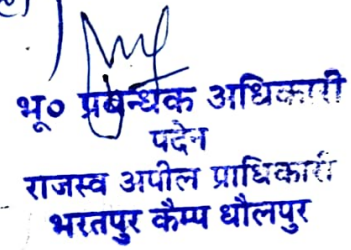 भू० प्रबन्धक अधिकारी
पदेन
राजस्व अपील प्राधिकारी
भरतपुर कैम्प धौलपुर